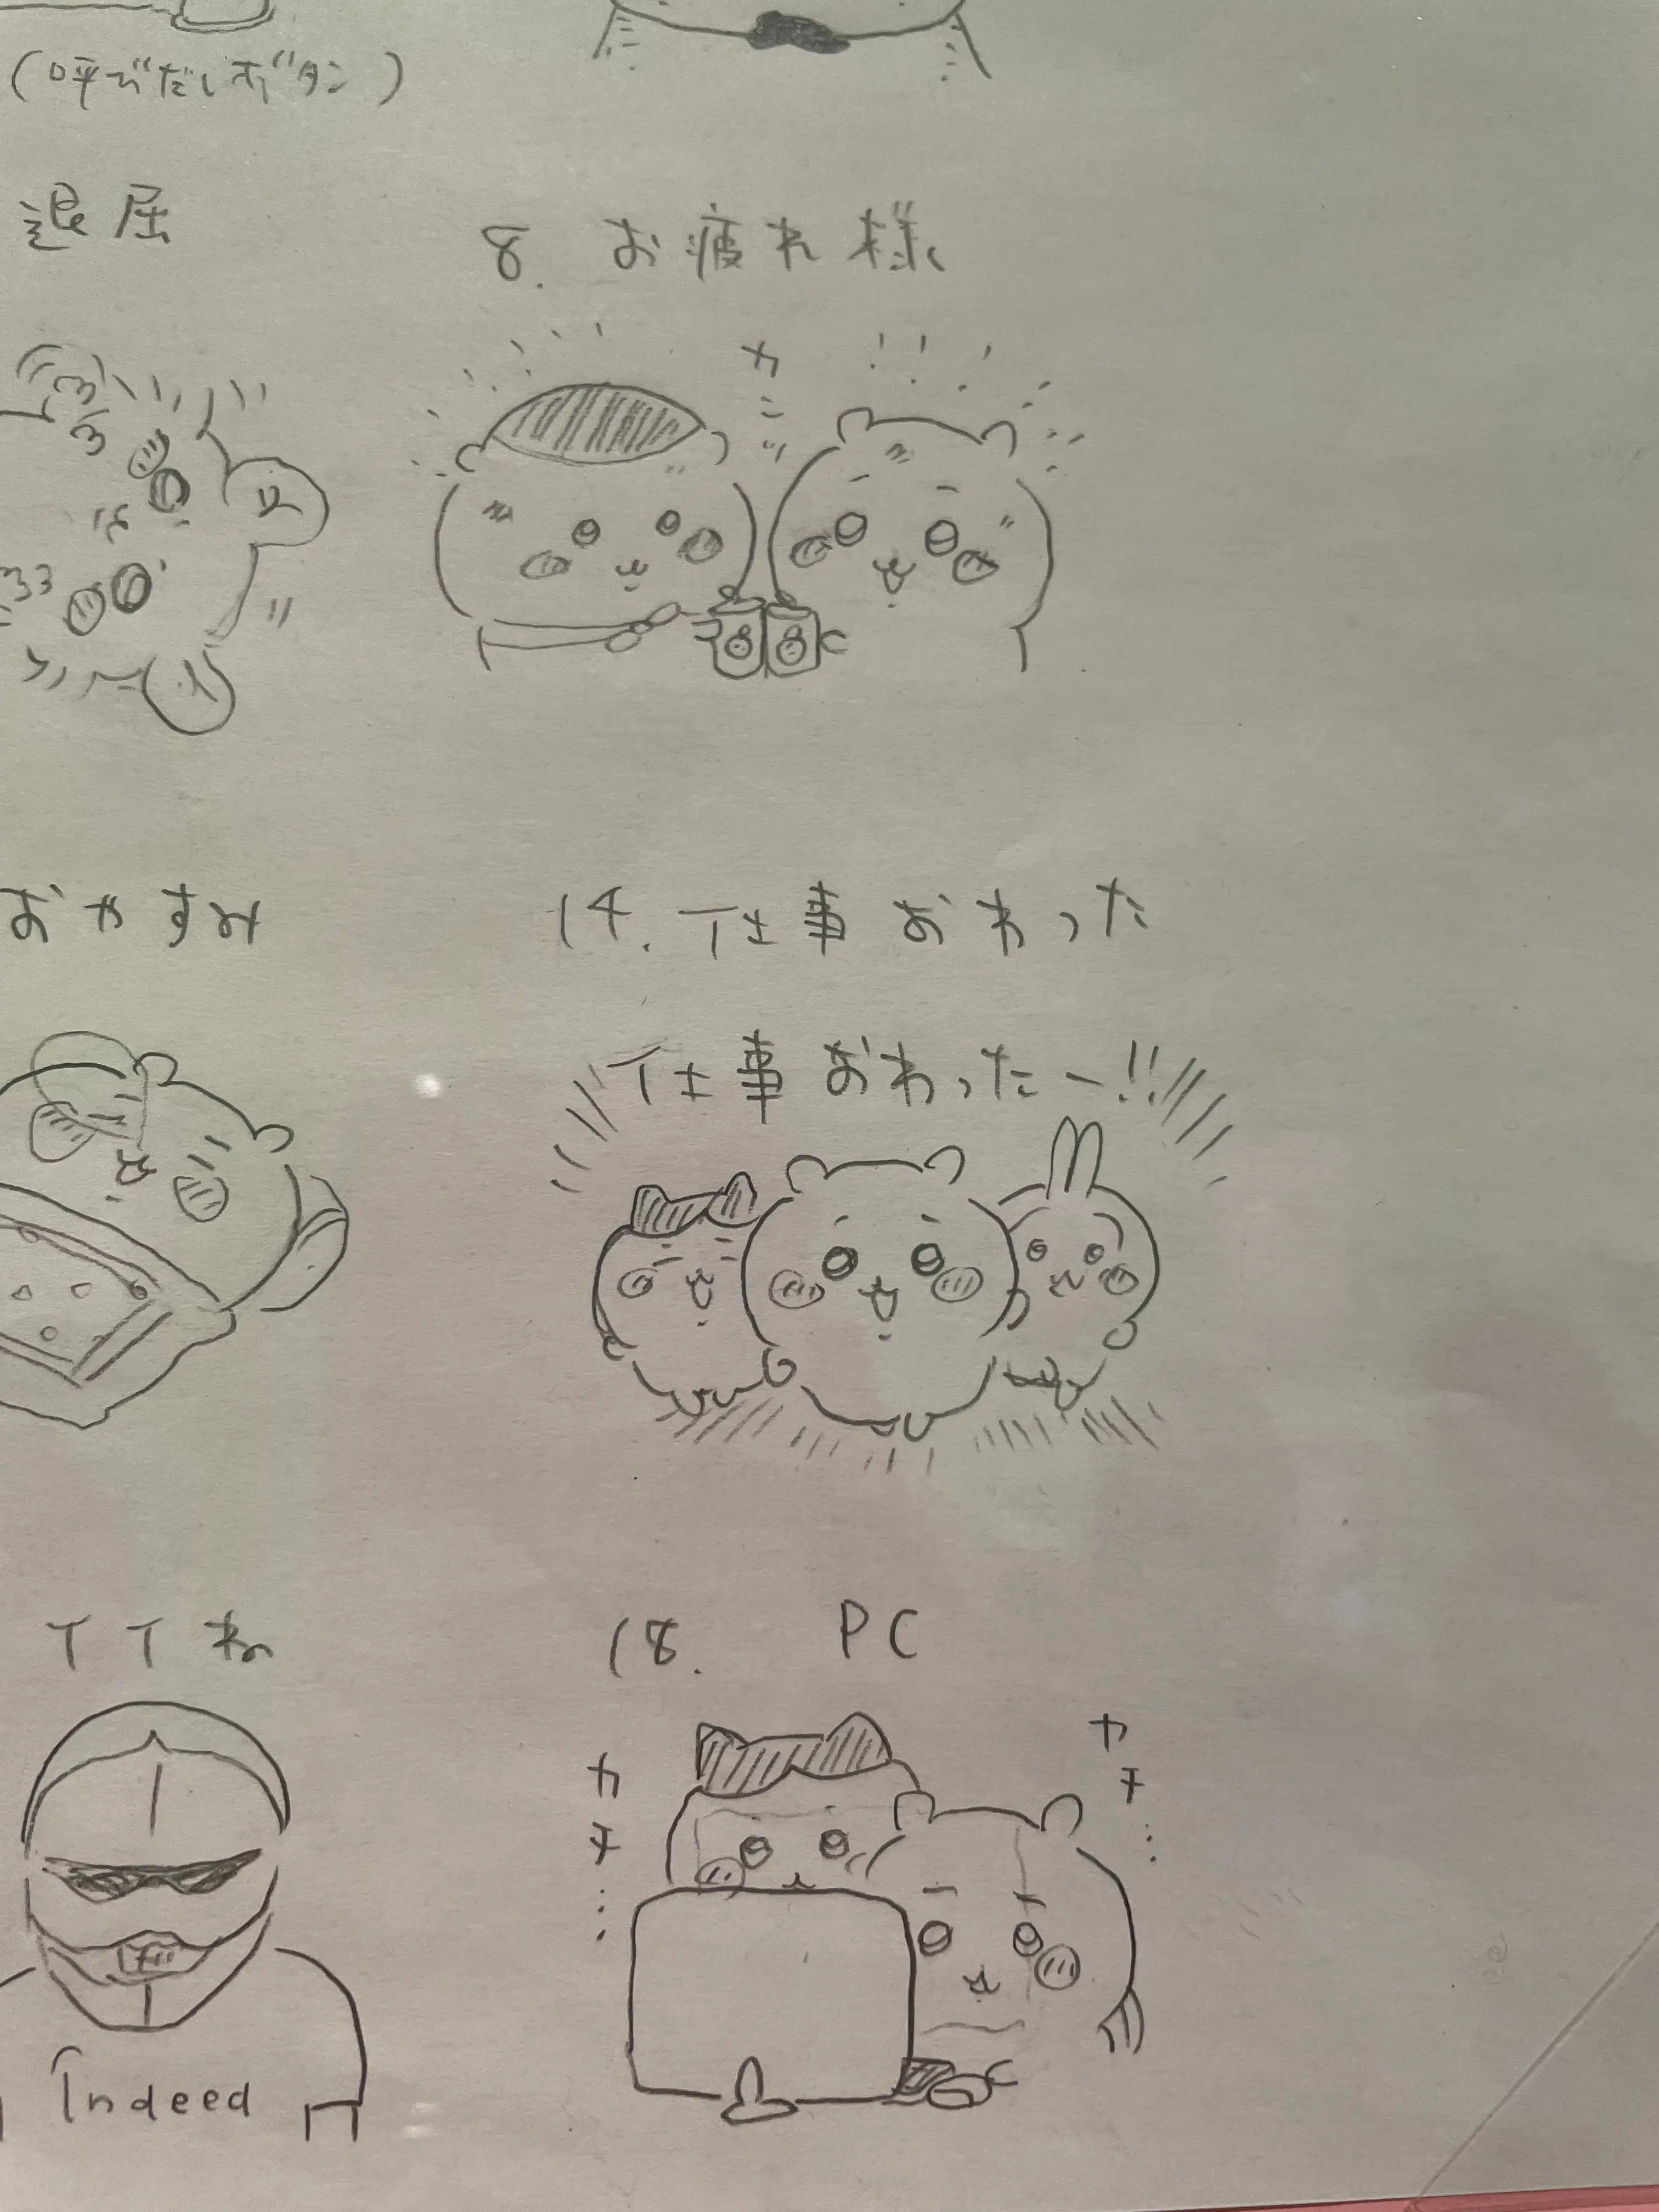 (呼びだしボタン)
退屈
8. お疲れ様
カ
ニ
おやすみ
14. 仕事おわった
仕事おわったー!!
TTね
18. PC
カ
チ
⋮
カ
チ
⋮
Indeed